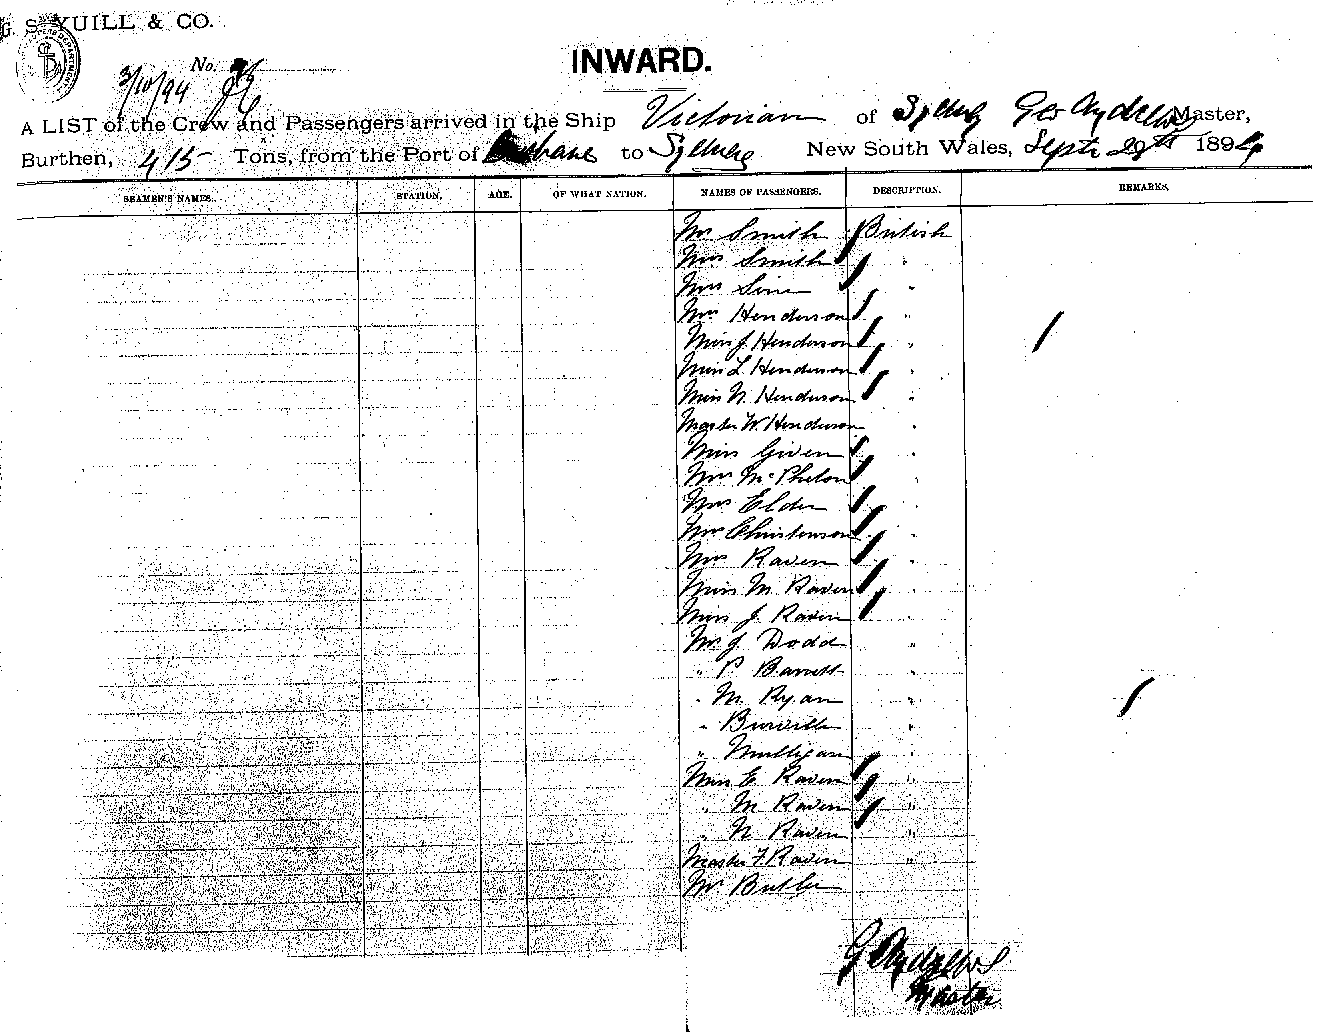 G. S. YUILL & CO.
No.
3/10/94
INWARD.
A LIST of the Crew and Passengers arrived in the Ship Victorian of Sydney Geo Andrews Master,
Burthen, 415 Tons, from the Port of Brisbane to Sydney New South Wales, Septr 29th 1894
SEAMEN'S NAMES. STATION. AGE. OF WHAT NATION. NAMES OF PASSENGERS. DESCRIPTION. REMARKS.
Mr Smith British
Mrs Smith "
Mrs Sim "
Mrs Henderson "
Miss J. Henderson "
Miss L. Henderson "
Miss N. Henderson "
Master W. Henderson "
Miss Given "
Mrs McPhelon "
Mrs Elder "
Mrs Christenson "
Mrs Raven "
Miss M. Raven "
Miss J. Raven "
Mr J Dodd "
" P. Barrett "
" M Ryan "
" Burville "
" Mulligan "
Miss E. Raven "
" M Raven "
" N Raven "
Master F. Raven "
Mr Butler
G Andrews
Master